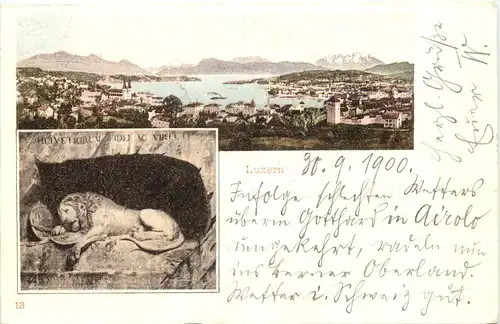 HELVETIORUM FIDEI AC VIRTUTI
Luzern
30. 9. 1900.
Infolge schlechten Wetters
überm Gotthard in Airolo
umgekehrt, radeln nun
ins berner Oberland.
Wetter i. Schweiz gut.
Herzl. Grüße
13